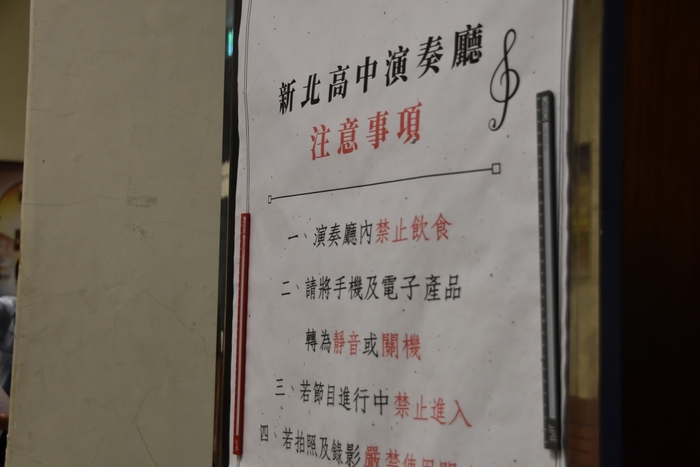 新北高中演奏廳
注意事項
一、演奏廳內禁止飲食
二、請將手機及電子產品
轉為靜音或關機
三、若節目進行中禁止進入
四、若拍照及錄影嚴禁使用閃